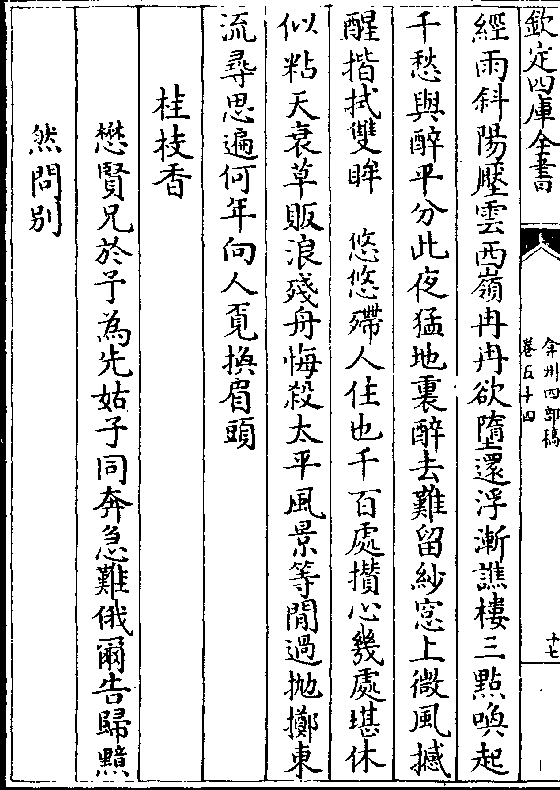 欽定四庫全書
弇州四部稿
卷五十四
十七
經雨斜陽壓雲西嶺冉冉欲墮還浮漸譙樓三點喚起
千愁與醉平分此夜猛地裏醉去難留紗窓上微風撼
醒揩拭雙眸　悠悠殢人住也千百處攅心幾處堪休
似粘天衰草販浪殘舟悔殺太平風景等閒過抛擲東
流尋思遍何年向人覔換眉頭
桂枝香
懋賢兄於予為先姑子同奔急難俄爾告歸黯
然問別